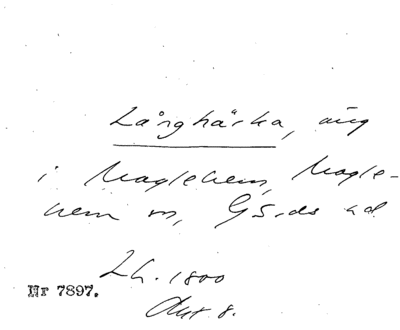 Långhärka, äng
i Maglehem, Magle-
hem sn, Gärds hd
Lh. 1800
Nr 7897.
Akt 8.